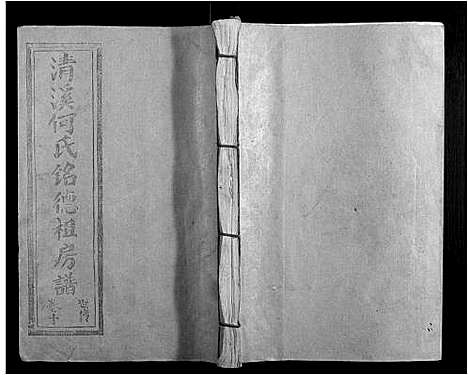 清溪何氏銘德祖房譜
卷十